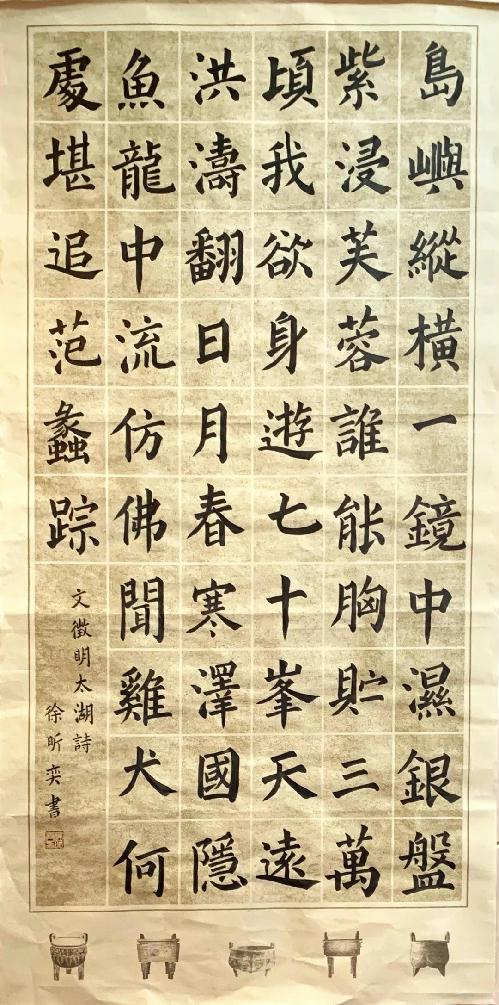 島嶼縱橫一鏡中濕銀盤
紫浸芙蓉誰能胸貯三萬
頃我欲身遊七十峯天遠
洪濤翻日月春寒澤國隱
魚龍中流仿佛聞雞犬何
處堪追范蠡踪
文徵明太湖詩
徐昕奕書